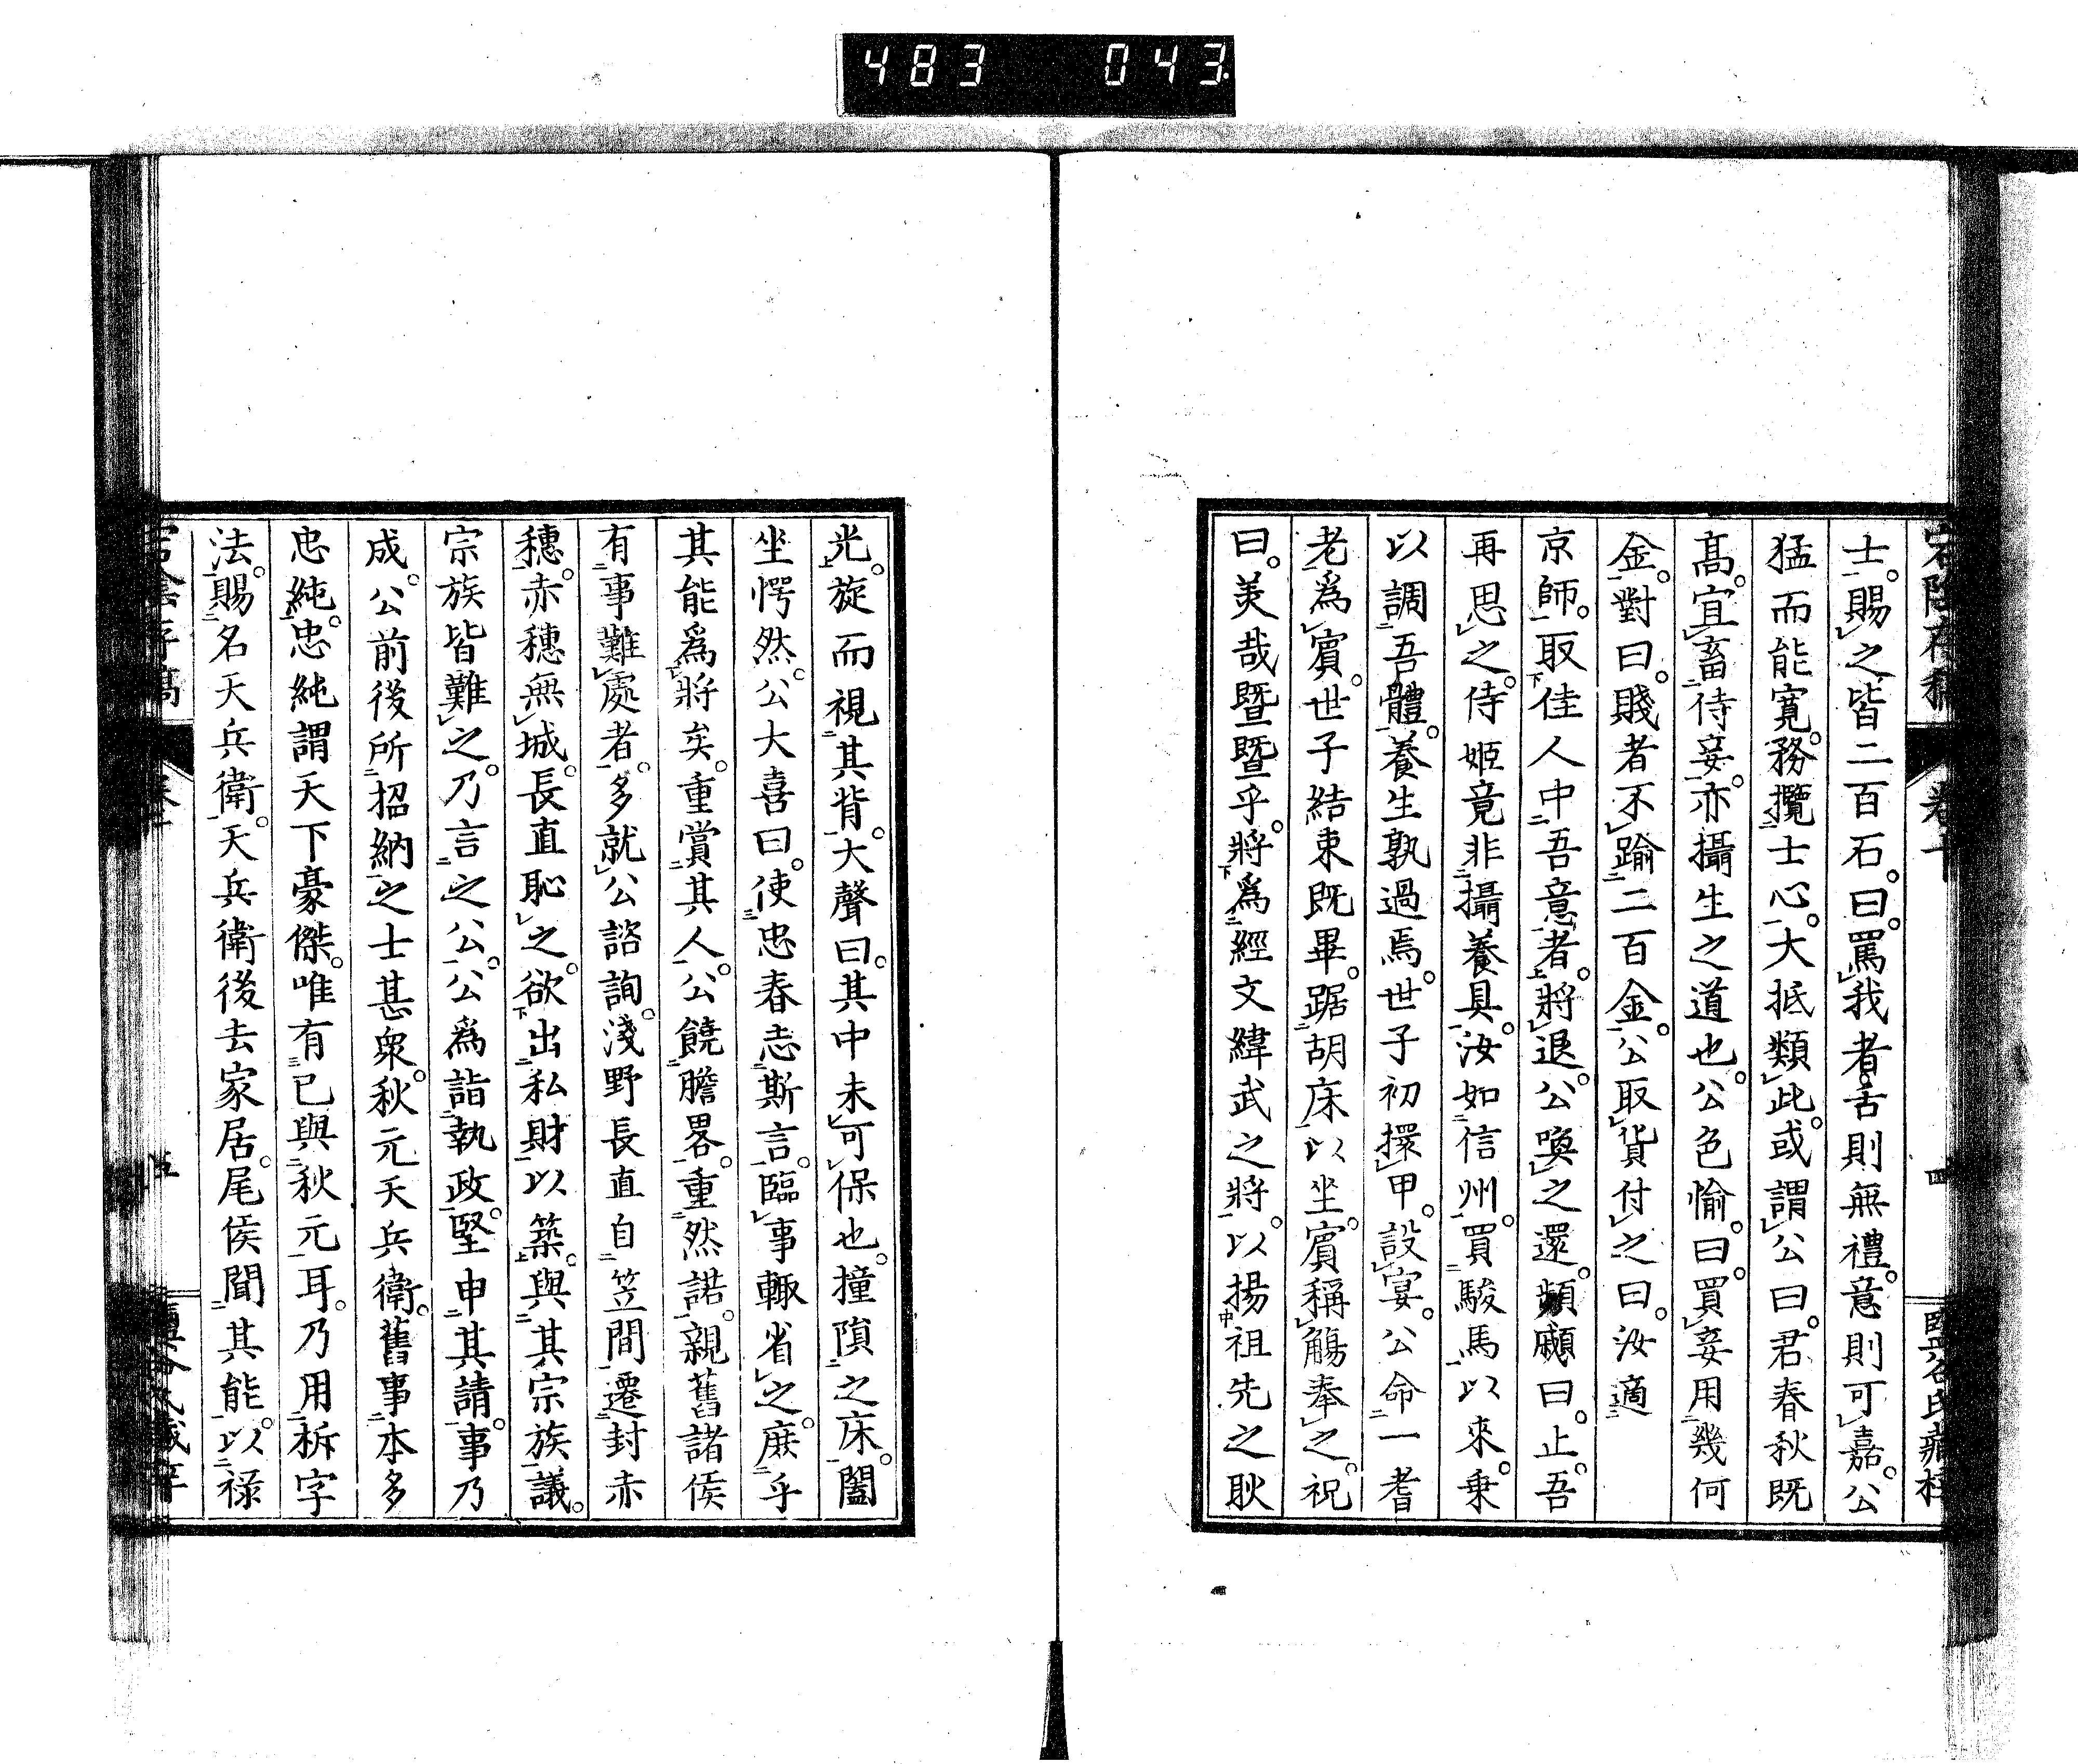 483 043
士。賜之皆二百石。曰。罵我者舌則無禮。意則可嘉。公
猛而能寬。務攬士心。大抵類此。或謂公曰。君春秋既
高。宜畜侍妾。亦攝生之道也。公色愉。曰。買妾用幾何
金。對曰。賤者不踰二百金。公取貨付之曰。汝適
京師。取佳人中吾意者。將退。公喚之還。頻顧曰。止。吾
再思之。侍姬竟非攝養具。汝如信州。買駿馬以來。乗
以調吾體。養生孰過焉。世子初擐甲。設宴。公命一耆
老爲賓。世子結束既畢。踞胡床以坐。賓稱觴奉之。祝
曰。美哉曁曁乎。將爲經文緯武之將。以揚祖先之耿
光。旋而視其背。大聲曰。其中未可保也。撞隕之床。闔
坐愕然。公大喜曰。使忠春志斯言。臨事輙省之。庶乎
其能爲將矣。重賞其人。公饒膽畧。重然諾。親舊諸侯
有事難處者。多就公諮詢。淺野長直自笠間遷封赤
穗。赤穗無城。長直恥之。欲出私財以築。與其宗族議。
宗族皆難之。乃言之公。公爲詣執政。堅申其請。事乃
成。公前後所招納之士甚衆。秋元天兵衛。舊事本多
忠純。忠純謂天下豪傑。唯有已與秋元耳。乃用析字
法。賜名天兵衛。天兵衛後去家居。尾侯聞其能。以禄